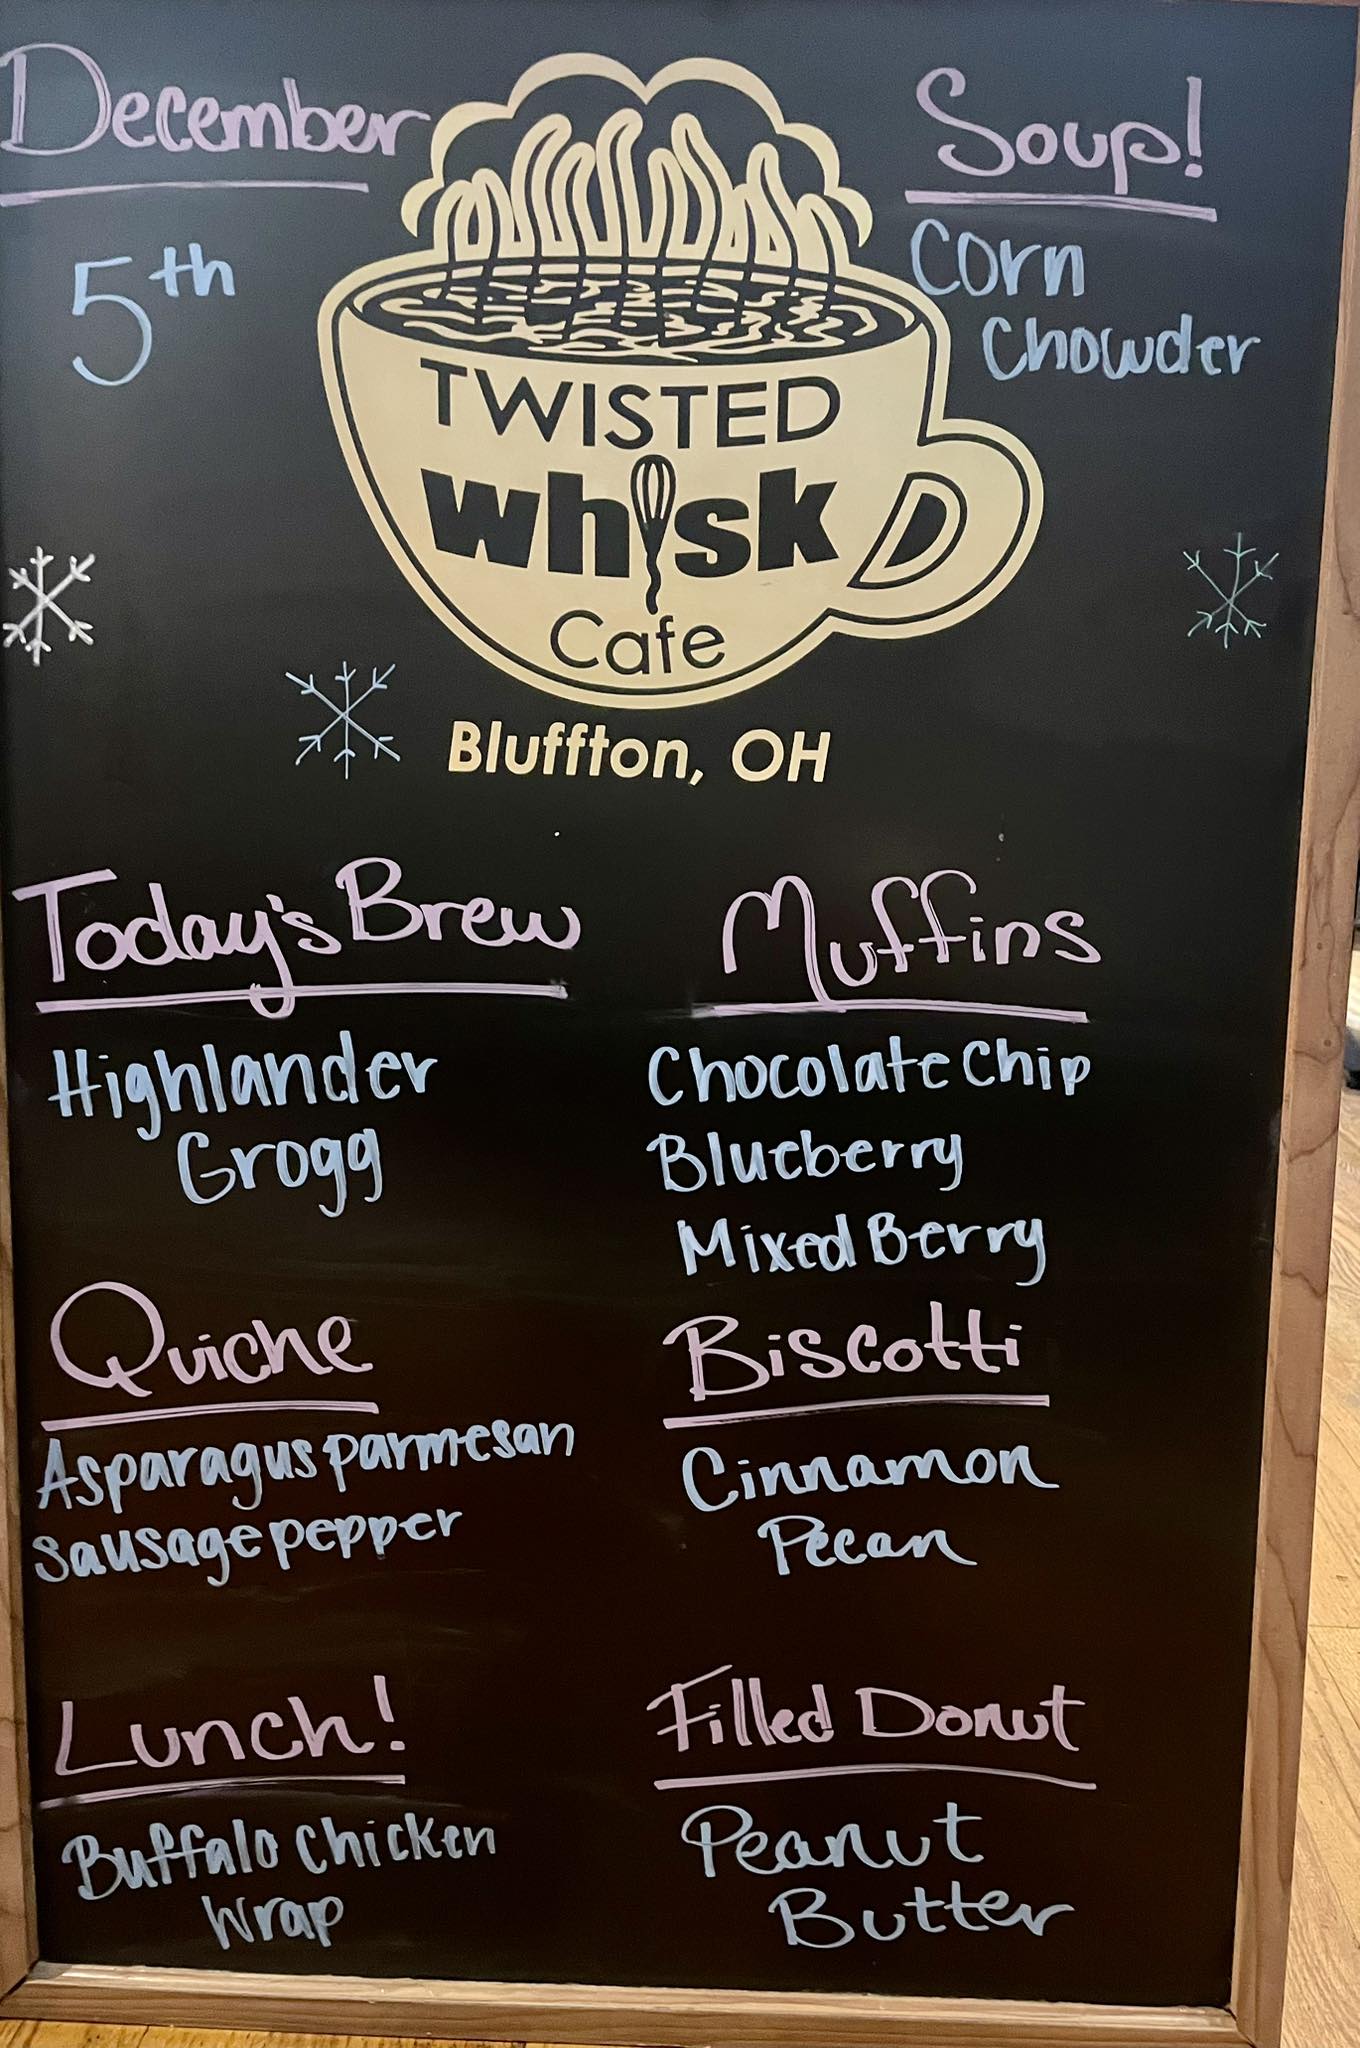 December
5th
Soup!
Corn
Chowder
TWISTED
whisk
Cafe
Bluffton, OH
Today's Brew
Highlander
Grogg
Muffins
Chocolate Chip
Blueberry
Mixed Berry
Quiche
Asparagus parmesan
sausage pepper
Biscotti
Cinnamon
Pecan
Lunch!
Buffalo Chicken
Wrap
Filled Donut
Peanut
Butter